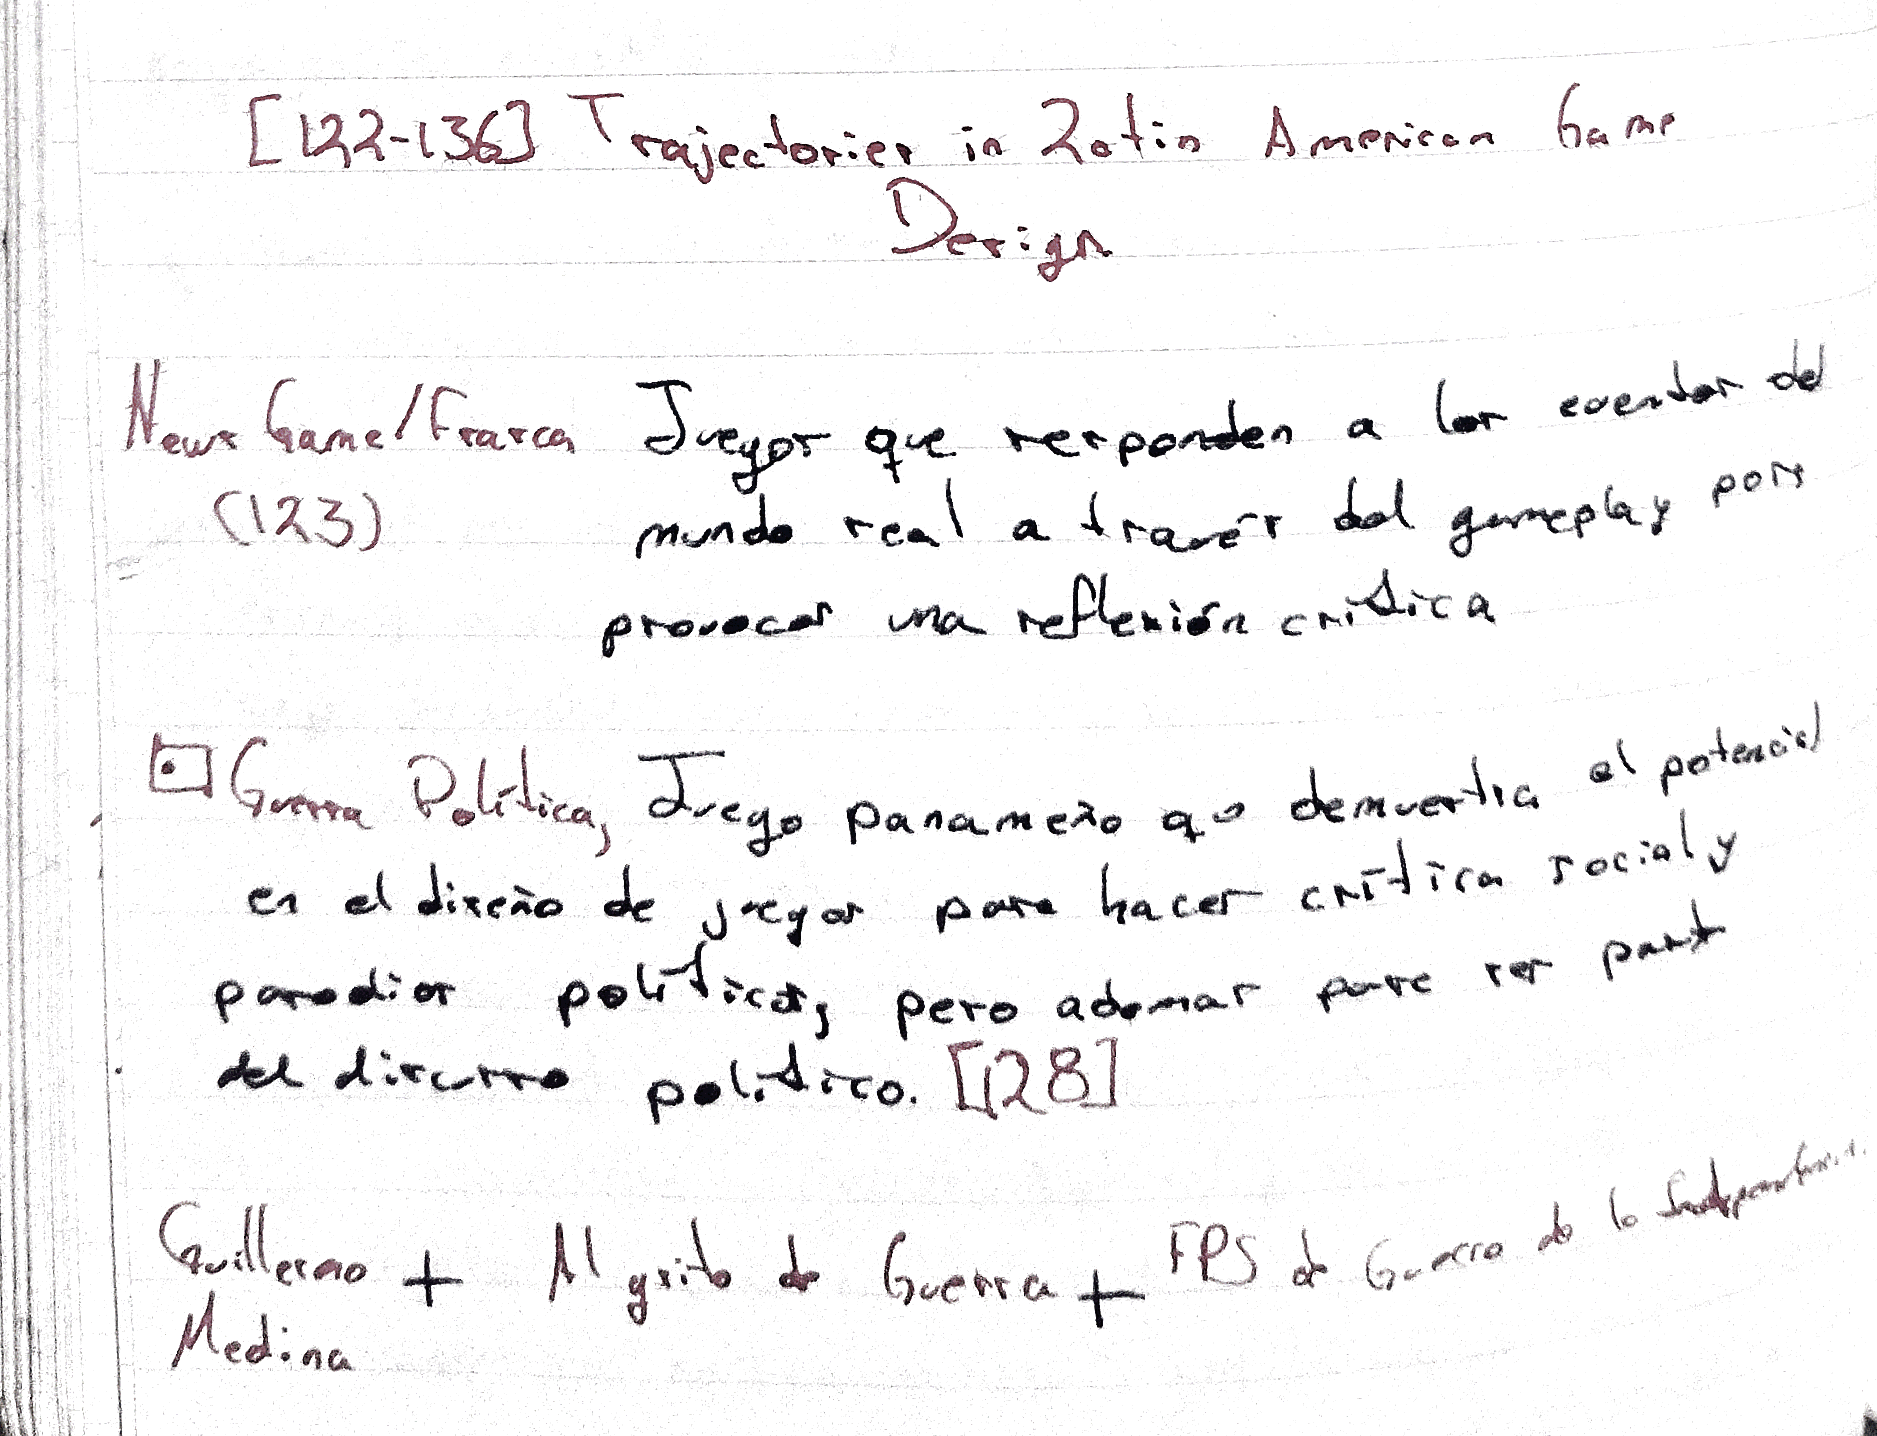 [122-136] Trajectories in Latin American Game
Design
News Game/Frasca Juegos que responden a los eventos del
(123) mundo real a través del gameplay para
provocar una reflexión crítica
Guerra Política, Juego panameño qe demuestra el potencial
en el diseño de juegos para hacer crítica social y
parodias políticas, pero ademas para ser parte
del discurso político. [128]
Guillermo + Al grito de Guerra + FPS de Guerra de la
Medina